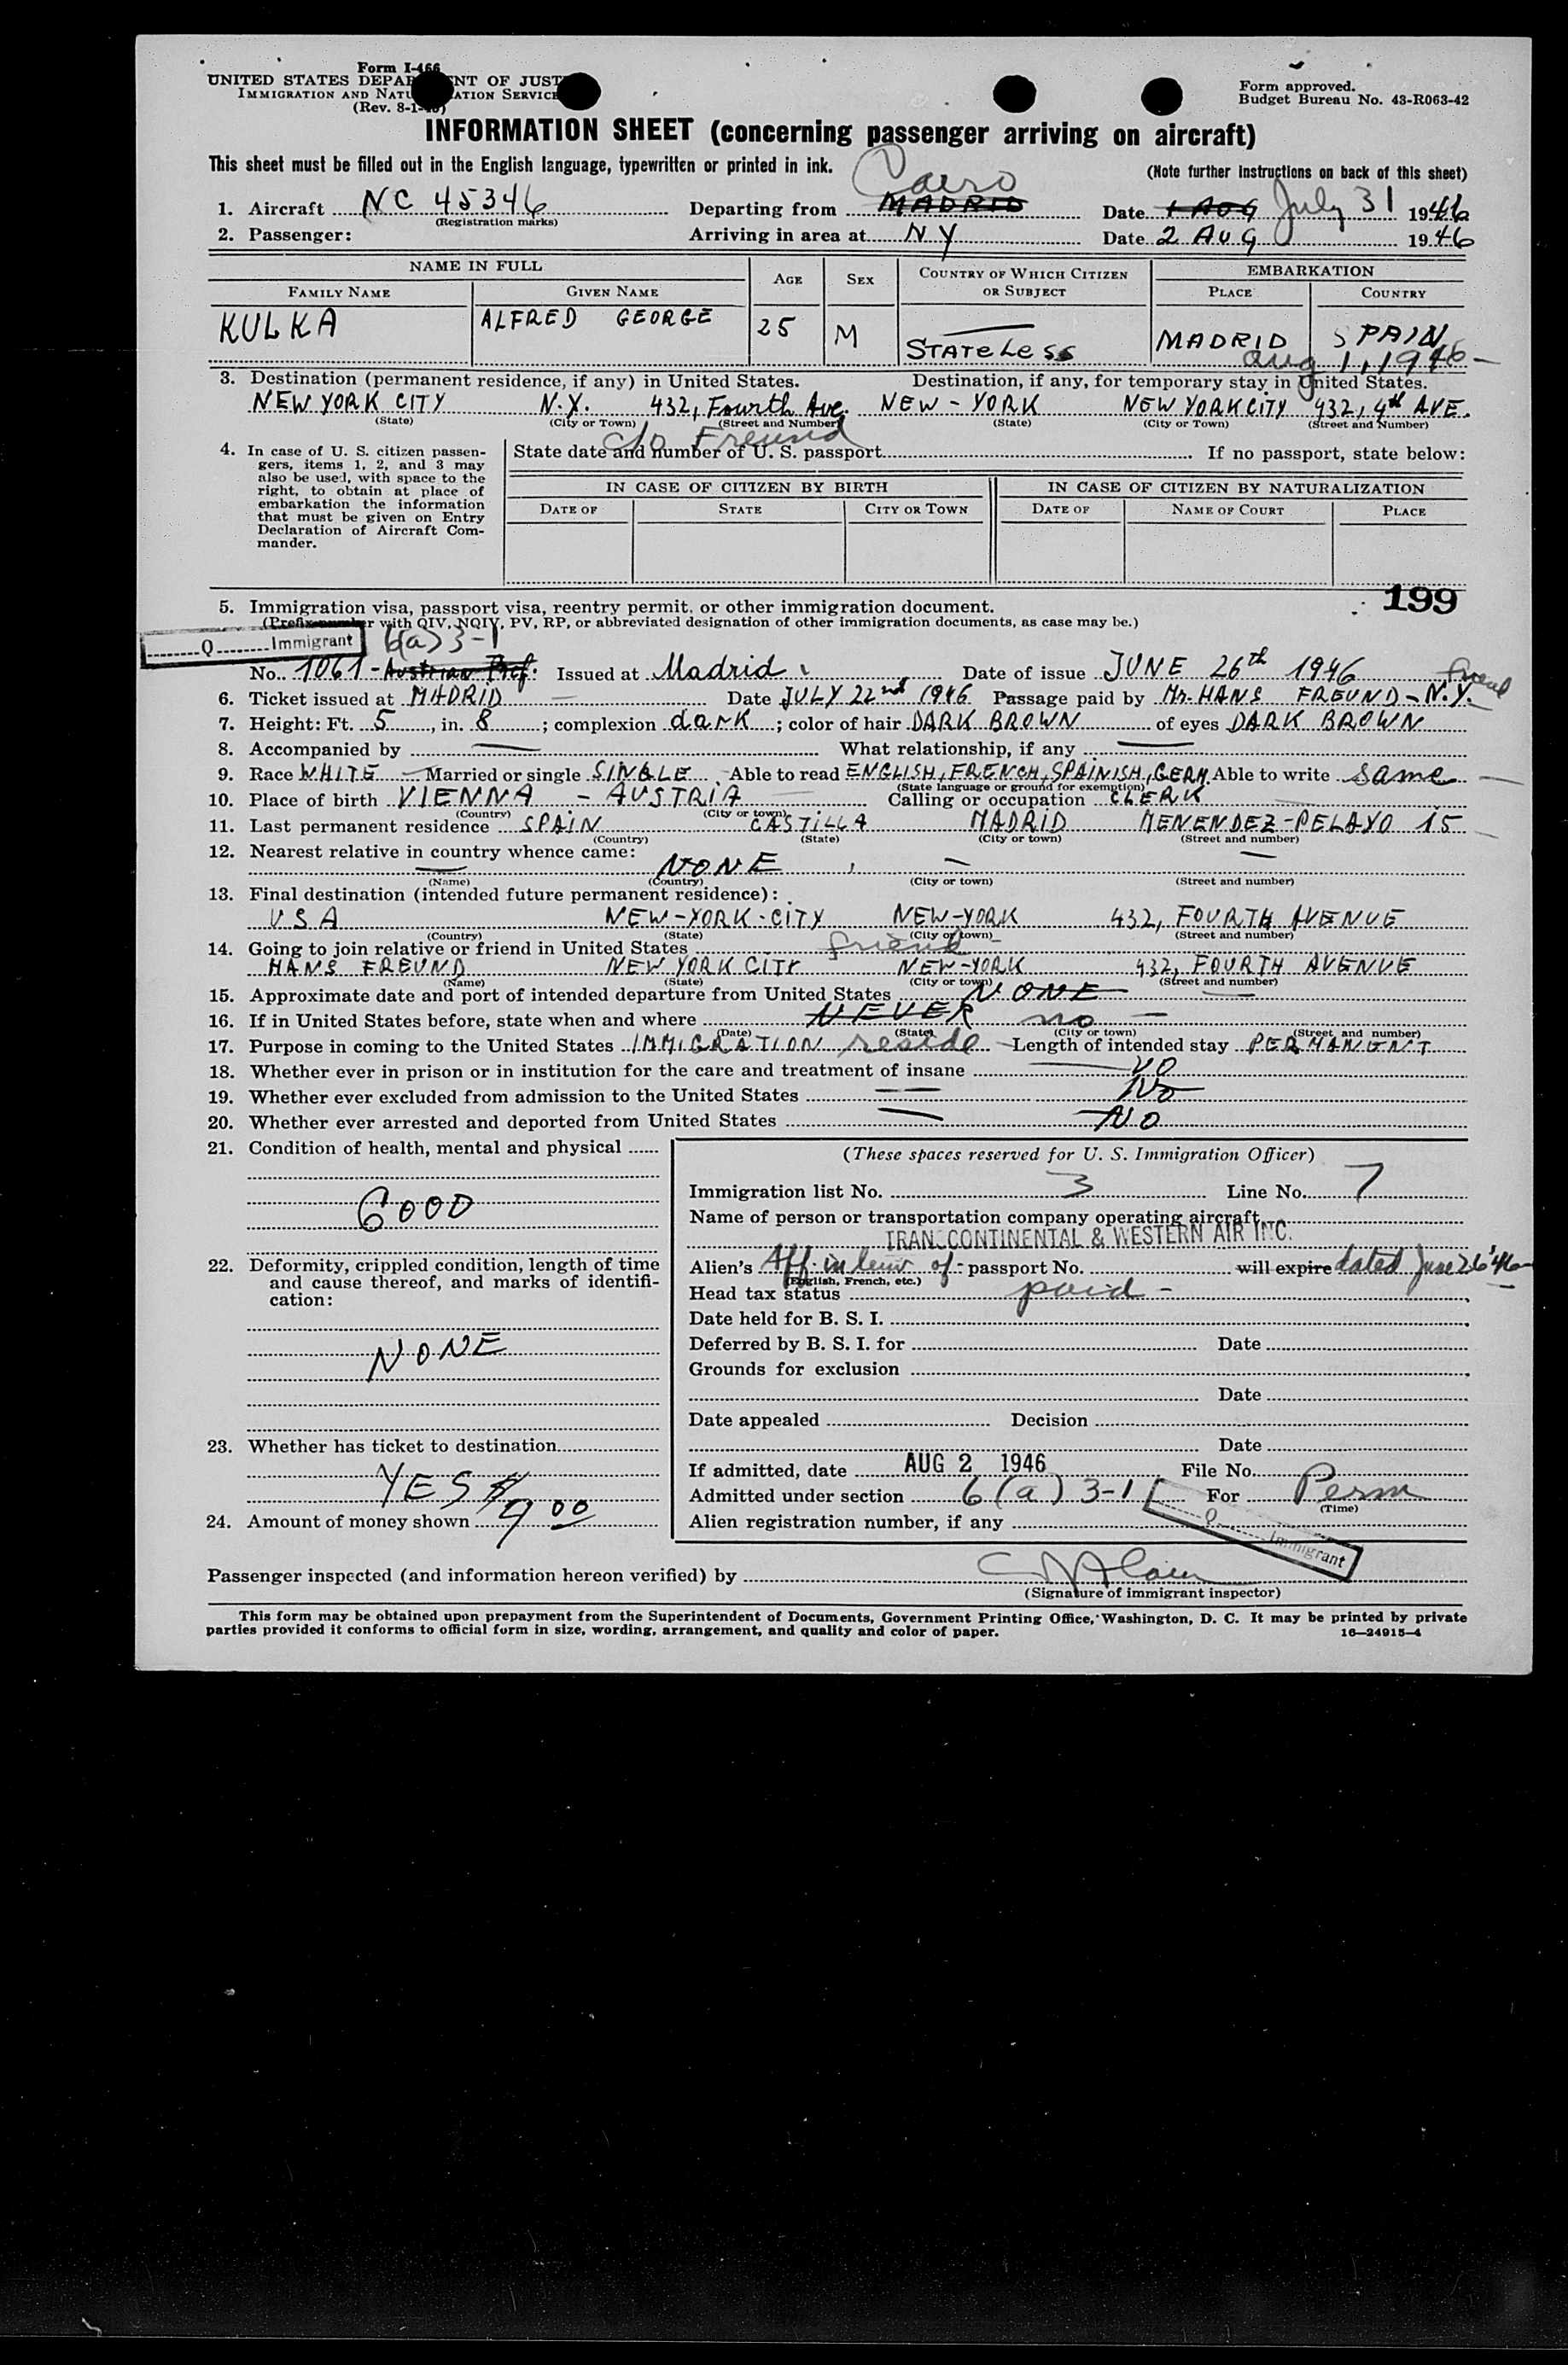 Form I-466
UNITED STATES DEPARTMENT OF JUST
IMMIGRATION AND NATU ATION SERVICE
(Rev. 8-1- )
Form approved.
Budget Bureau No. 43-R063-42
INFORMATION SHEET (concerning passenger arriving on aircraft)
This sheet must be filled out in the English language, typewritten or printed in ink.
(Note further instructions on back of this sheet)
Cairo
1. Aircraft NC 45346 Departing from MADRID Date 1 AUG July 31 1946
(Registration marks)
2. Passenger: Arriving in area at NY Date 2 AUG 1946
NAME IN FULL AGE SEX COUNTRY OF WHICH CITIZEN OR SUBJECT EMBARKATION
FAMILY NAME GIVEN NAME PLACE COUNTRY
KULKA ALFRED GEORGE 25 M STATELESS MADRID SPAIN
Aug 1, 1946
3. Destination (permanent residence, if any) in United States. Destination, if any, for temporary stay in United States.
NEW YORK CITY N.Y. 432, Fourth Ave. NEW-YORK NEW YORK CITY 432, 4th AVE.
(State) (City or Town) (Street and Number) (State) (City or Town) (Street and Number)
c/o Freund
4. In case of U. S. citizen passengers, items 1, 2, and 3 may
also be used, with space to the
right, to obtain at place of
embarkation the information
that must be given on Entry
Declaration of Aircraft Com-
mander.
State date and number of U. S. passport If no passport, state below:
IN CASE OF CITIZEN BY BIRTH IN CASE OF CITIZEN BY NATURALIZATION
DATE OF STATE CITY OR TOWN DATE OF NAME OF COURT PLACE
199
5. Immigration visa, passport visa, reentry permit, or other immigration document.
(Prefix number with QIV, NQIV, PV, RP, or abbreviated designation of other immigration documents, as case may be.)
Q Immigrant 6(a)3-1
No. 1061 - Austrian Pref. Issued at Madrid Date of issue JUNE 26th 1946
friend
6. Ticket issued at MADRID Date JULY 22nd 1946 Passage paid by Mr. HANS FREUND - N.Y.
7. Height: Ft. 5, in. 8; complexion dark; color of hair DARK BROWN of eyes DARK BROWN
8. Accompanied by What relationship, if any
9. Race WHITE Married or single SINGLE Able to read ENGLISH, FRENCH, SPAINISH, GERM. Able to write same
(State language or ground for exemption)
10. Place of birth VIENNA - AUSTRIA Calling or occupation CLERK
(Country) (City or town)
11. Last permanent residence SPAIN CASTILLA MADRID MENENDEZ-PELAYO 15
(Country) (State) (City or town) (Street and number)
12. Nearest relative in country whence came:
NONE
(Name) (Country) (City or town) (Street and number)
13. Final destination (intended future permanent residence):
USA NEW-YORK-CITY NEW-YORK 432, FOURTH AVENUE
(Country) (State) (City or town) (Street and number)
14. Going to join relative or friend in United States friend
HANS FREUND NEW YORK CITY NEW-YORK 432, FOURTH AVENUE
(Name) (State) (City or town) (Street and number)
15. Approximate date and port of intended departure from United States NONE
16. If in United States before, state when and where NEVER no
(Date) (State) (City or town) (Street and number)
17. Purpose in coming to the United States IMMIGRATION reside Length of intended stay PERMANENT
18. Whether ever in prison or in institution for the care and treatment of insane NO
19. Whether ever excluded from admission to the United States NO
20. Whether ever arrested and deported from United States NO
21. Condition of health, mental and physical
GOOD
22. Deformity, crippled condition, length of time
and cause thereof, and marks of identifi-
cation:
NONE
23. Whether has ticket to destination
YES
24. Amount of money shown $9 00
(These spaces reserved for U. S. Immigration Officer)
Immigration list No. 3 Line No. 7
Name of person or transportation company operating aircraft
TRANSCONTINENTAL & WESTERN AIR INC.
Alien's Aff. in lieu of passport No. will expire dated June 26 '46
(English, French, etc.)
Head tax status paid
Date held for B. S. I.
Deferred by B. S. I. for Date
Grounds for exclusion
Date
Date appealed Decision
Date
If admitted, date AUG 2 1946 File No.
Admitted under section 6(a)3-1 For Perm
(Time)
Alien registration number, if any
Q Immigrant
Passenger inspected (and information hereon verified) by
(Signature of immigrant inspector)
This form may be obtained upon prepayment from the Superintendent of Documents, Government Printing Office, Washington, D. C. It may be printed by private
parties provided it conforms to official form in size, wording, arrangement, and quality and color of paper.
16—24915-4